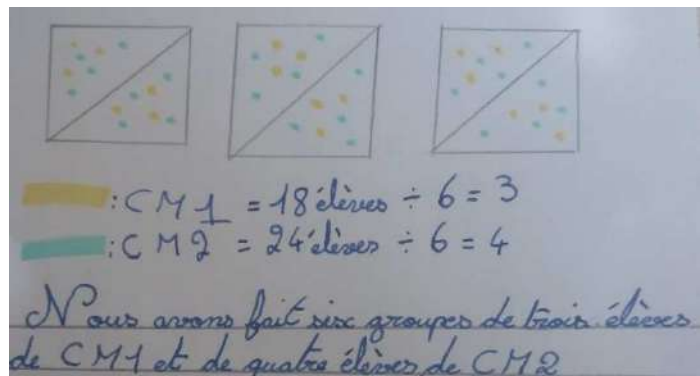 : CM1 = 18 élèves ÷ 6 = 3
: CM2 = 24 élèves ÷ 6 = 4
Nous avons fait six groupes de trois élèves
de CM1 et de quatre élèves de CM2